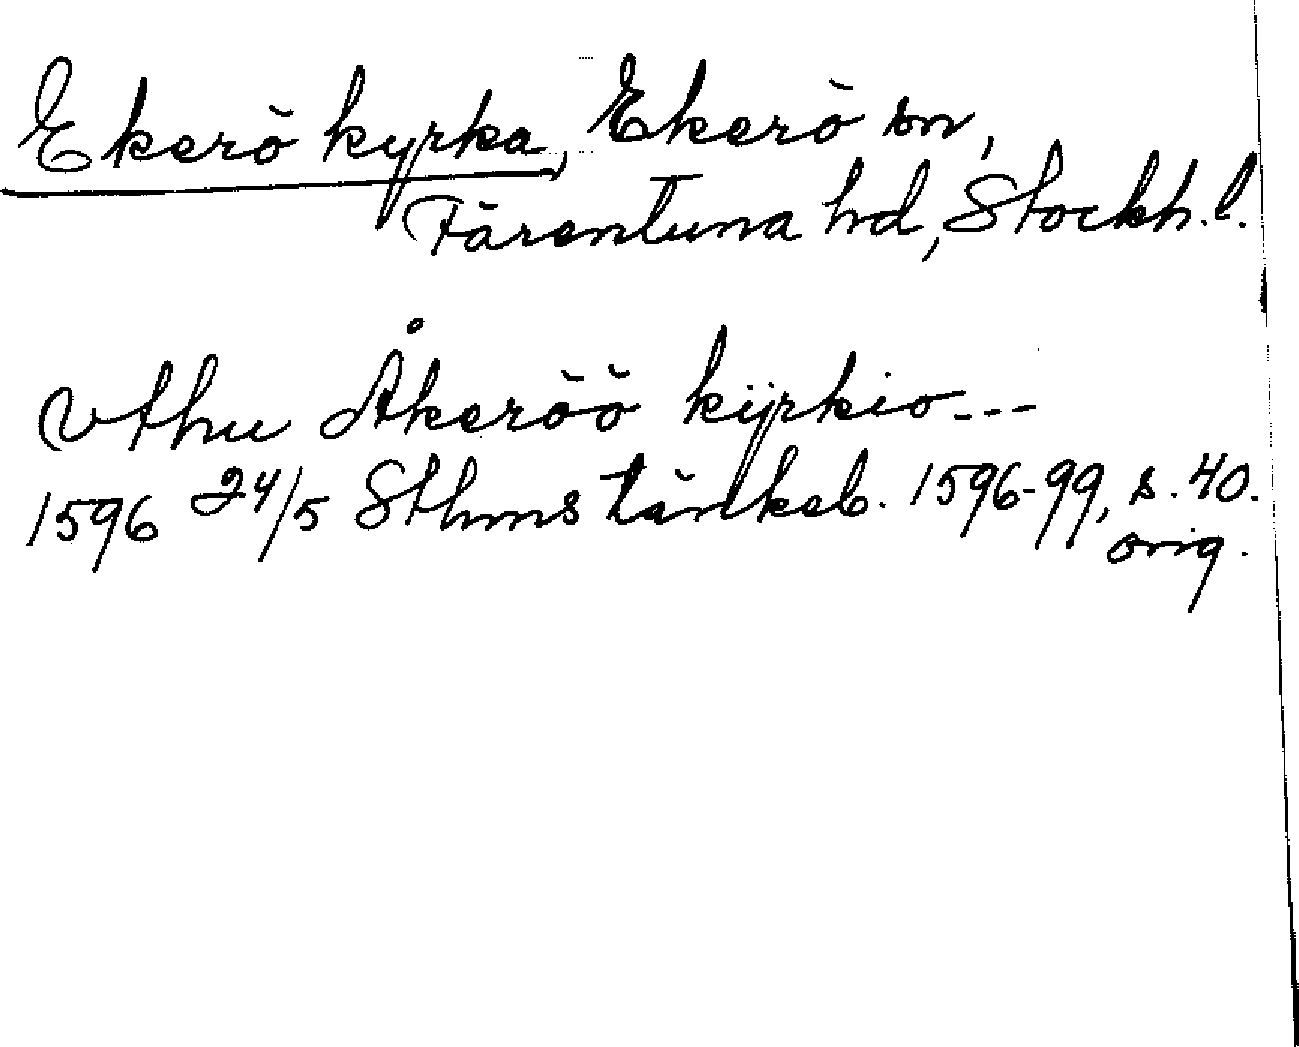 Ekerö kyrka, Ekerö sn,
Färentuna hd, Stockh. l.
Vthu Åkeröö kijrkio---
1596 24/5 Sthms tänkeb. 1596-99, s. 40.
orig.